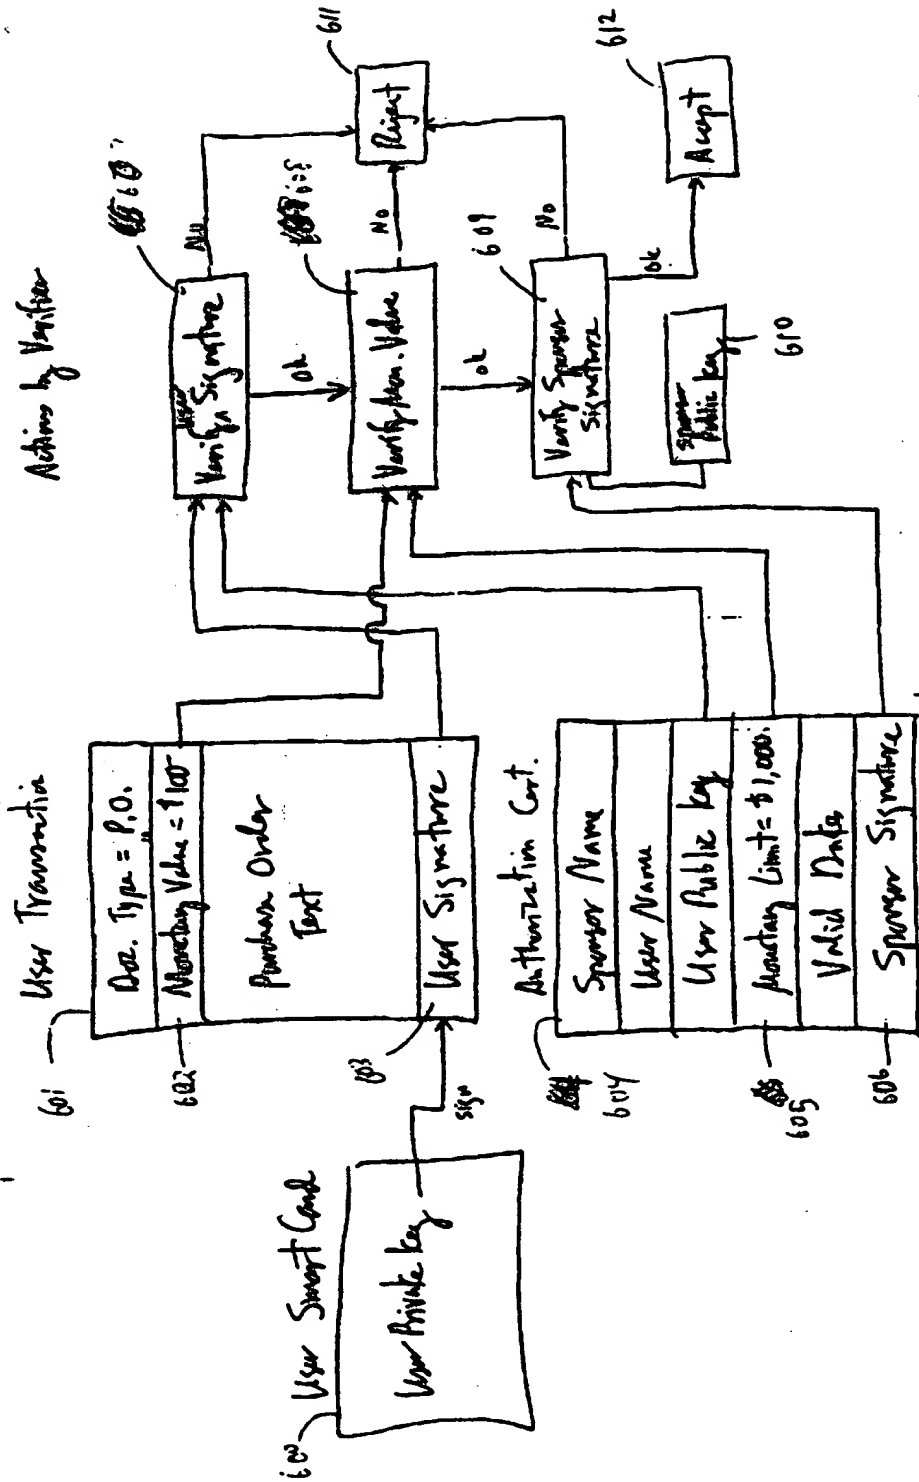 User Smart Card
600
User Private Key
sign
User Transaction
601
Doc. Type = P.O.
602
Monetary Value = $100
Purchase Order
Text
603
User Signature
Authorization Cert.
604
Sponsor Name
User Name
User Public Key
605
Monetary Limit = $1,000.
Valid Date
606
Sponsor Signature
Actions by Verifier
User
Verify Signature
No
ok
Verify Mon. Value
No
ok
609
Verify Sponsor
Signature
No
ok
Sponsor
Public Key
610
611
Reject
612
Accept